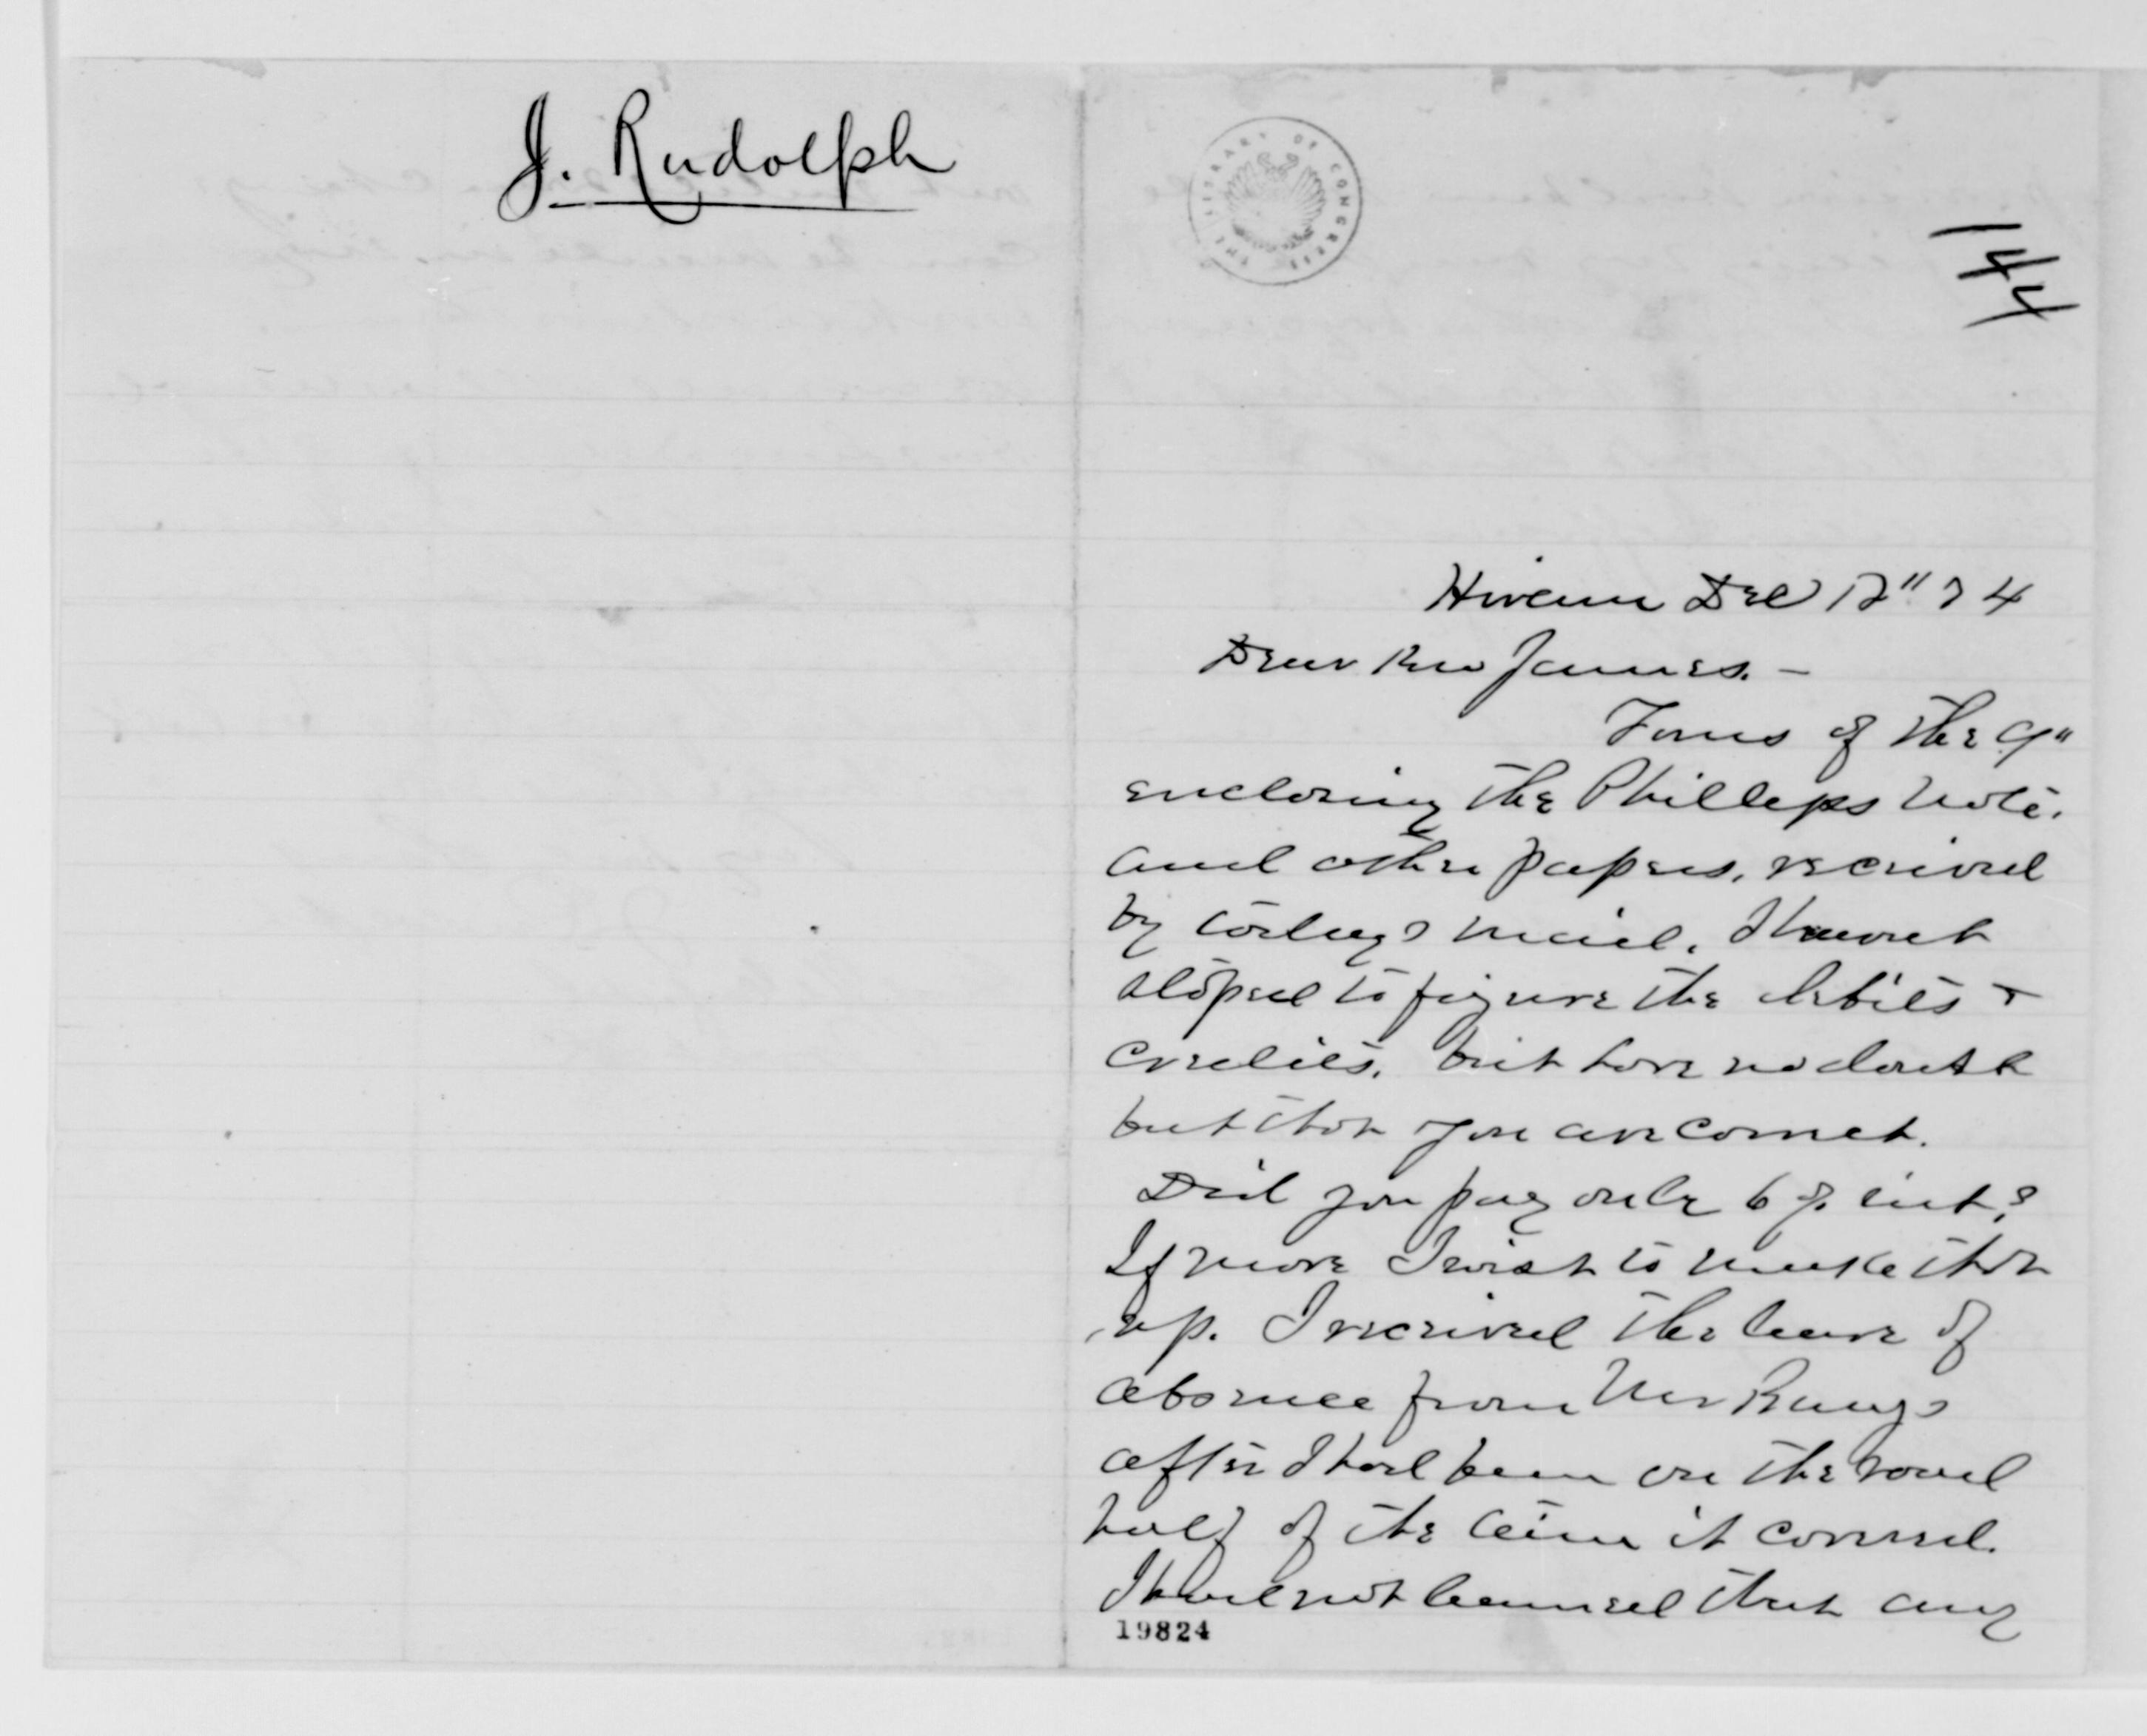 J. Rudolph
THE LIBRARY OF CONGRESS
144
Hiram Dec 12" 74
Dear Bro James. –
Yours of the 9"
enclosing the Phillips note.
and other papers, received
by todays mail. I have not
stoped to figure the debits &
credits. but have no doubt
but that you are correct.
Did you pay only 6 % int.?
If more I wish to make that
up. I received the leave of
absence from Mr Bangs
after I had been on the road
half of the time it covered.
I had not learned that any
19824